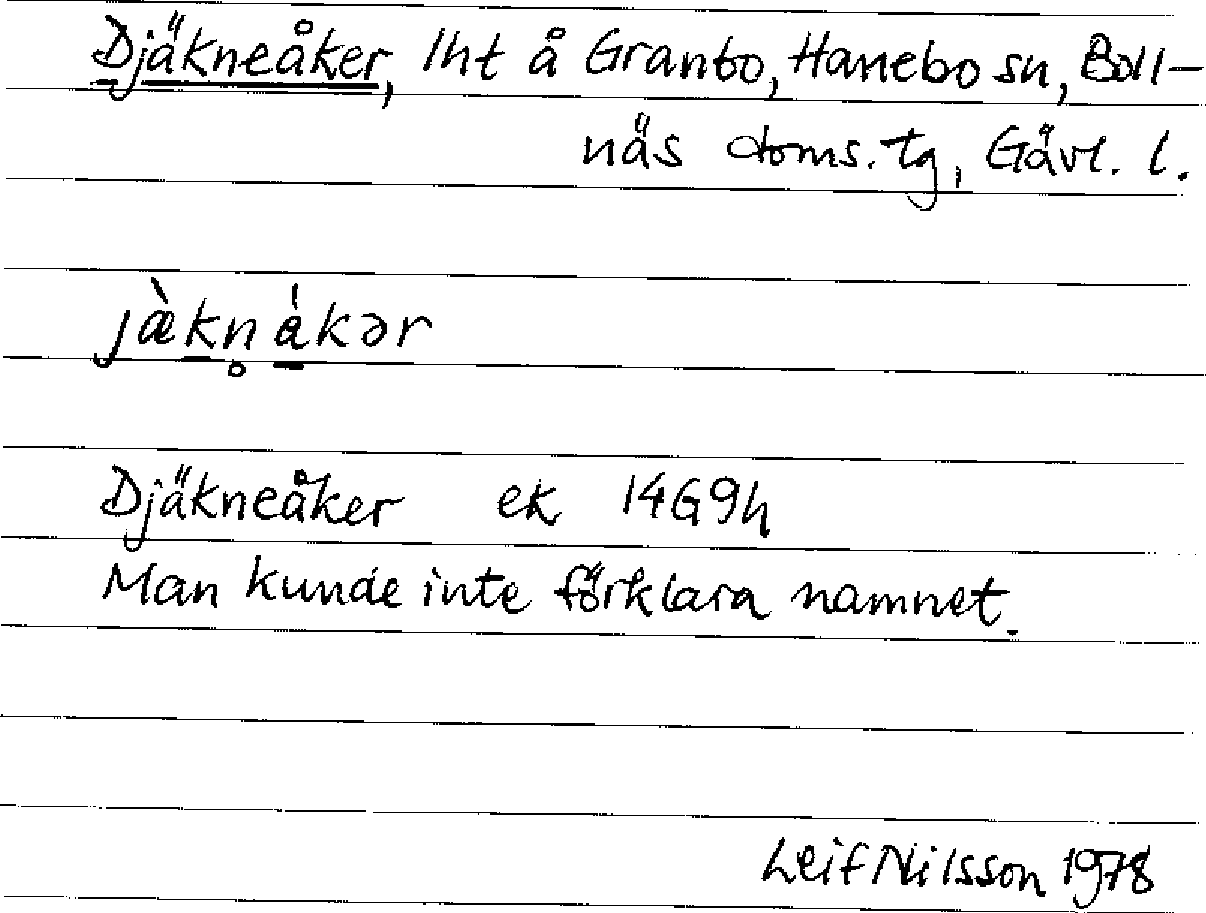 Djäkneåker, lht å Granbo, Hanebo sn, Boll-
näs doms. tg, Gävl. l.
jæ̀kn̥ åkər
Djäkneåker ek 14G9h
Man kunde inte förklara namnet.
Leif Nilsson 1978